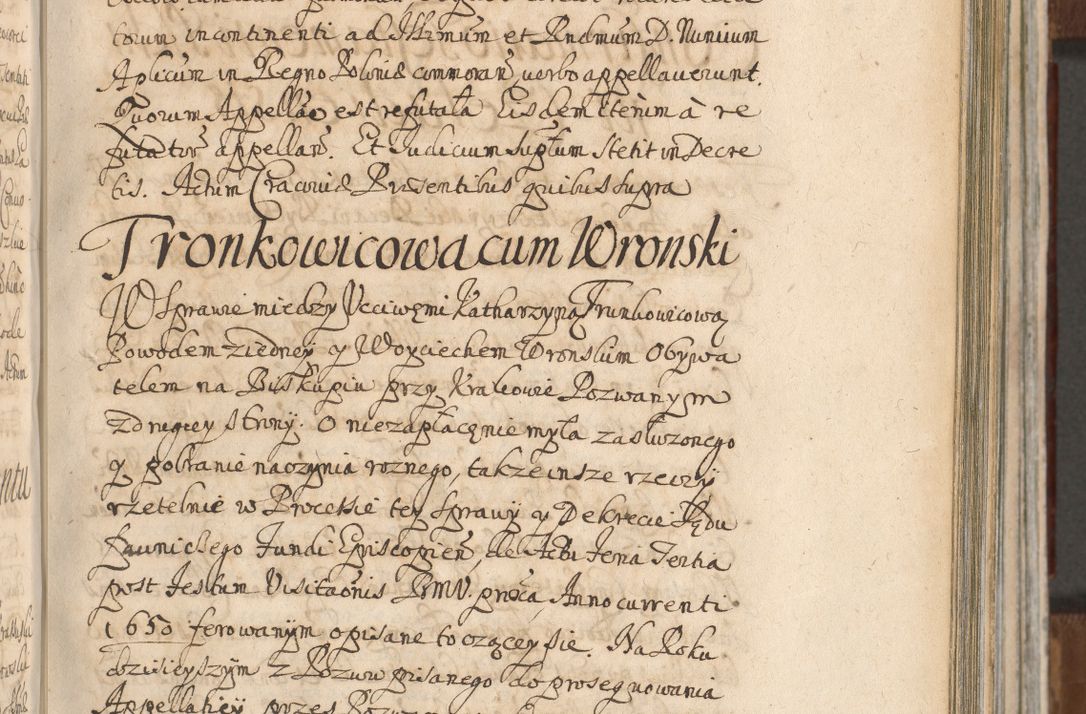 torum incontinenti ad Illrmum et Rndmum D. Nunium
Aplicum in Regno Poloniæ commoran, verbo appellaverunt.
Quorum Appellão est refutata Eisdem etenim à re
futator appellan. Et Iudicium Supltum stetit in Decre
tis. Actum Cracoviæ Præsentibus quibus supra
Tronkowicowa cum Wronski
W Sprawie miedzy Ucciwęmi Katharzyną Trunkowicową
Powodem z iedney y Woyciechem Wronskim Obywa
telem na Biskupiu przy Krakowie Pozwanym
z drugiey strony. O niezapłacęnie myta zasłuzonego
y pobranie naczynia roznego, takze insze rzeczy
rzetelnie w Processie tey sprawy y Dekrecie Sądu
Ławniczego Fundi Episcopien, de Actu Feria Tertia
post Festum Visitaonis BMV. proxa, Anno currenti
1650 ferowanym opisane toczącey sie. Na Roku
dzisieyszym z Pozwu pisanego do prosequowania
Appellatiey przez